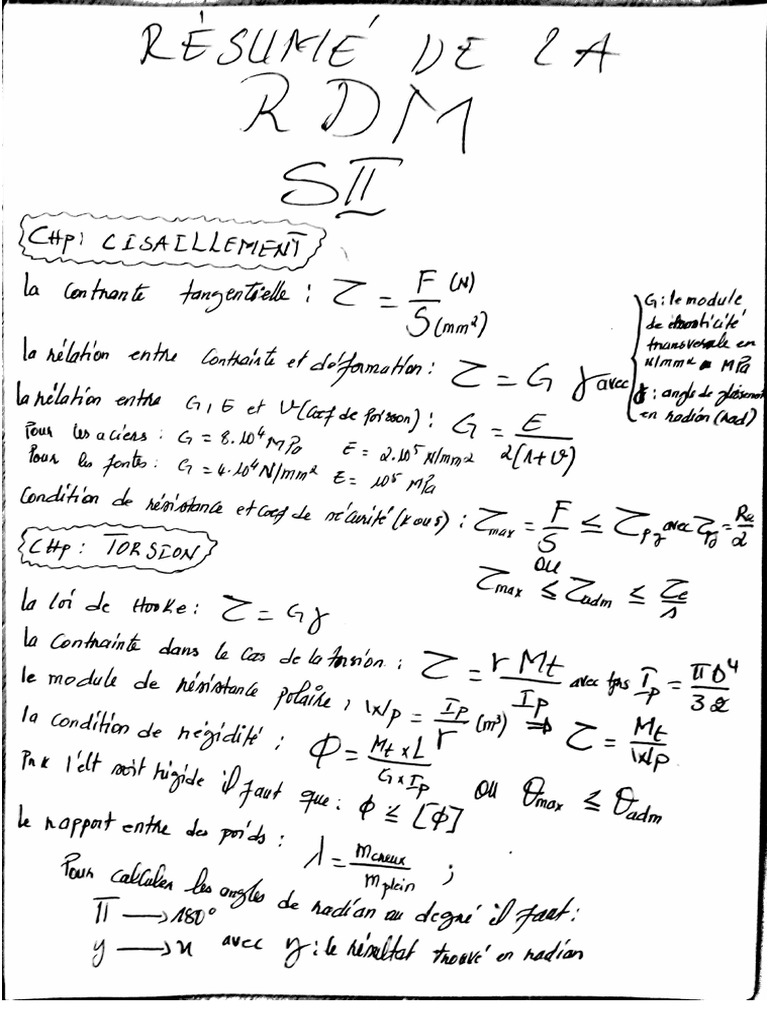 RÉSUMÉ DE LA
RDM
SII
CHP: CISAILLEMENT
la contrainte tangentielle : τ = F (N) / S (mm²)
G: le module
de élasticité
transversale en
N/mm² = MPa
γ: angle de glissement
en radian (rad)
la rélation entre contrainte et déformation : τ = G γ avec
la rélation entre G, E et υ (Coef de Poisson) : G = E / 2(1+υ)
Pour les aciers : G = 8.10⁴ MPa E = 2.10⁵ N/mm²
Pour les fontes : G = 4.10⁴ N/mm² E = 10⁵ MPa
Condition de résistance et coef de sécurité (k ou s) : τmax = F/S ≤ τpg avec τpg = Re/2
ou
τmax ≤ τadm ≤ τe/s
CHP : TORSION
la loi de Hooke : τ = G γ
la contrainte dans le cas de la torsion : τ = r Mt / Ip avec Ip = πD⁴/32
le module de résistance polaire : Wp = Ip/r (m³) ⇒ τ = Mt/Wp
la condition de régidité : ϕ = Mt x L / G x Ip
l'élt soit rigide il faut que : ϕ ≤ [ϕ] ou θmax ≤ θadm
le rapport entre des poids : λ = mcreux / mplein ;
Pour calculer les angles de radian au degré il faut :
π → 180°
y → x avec y : le résultat trouvé en radian